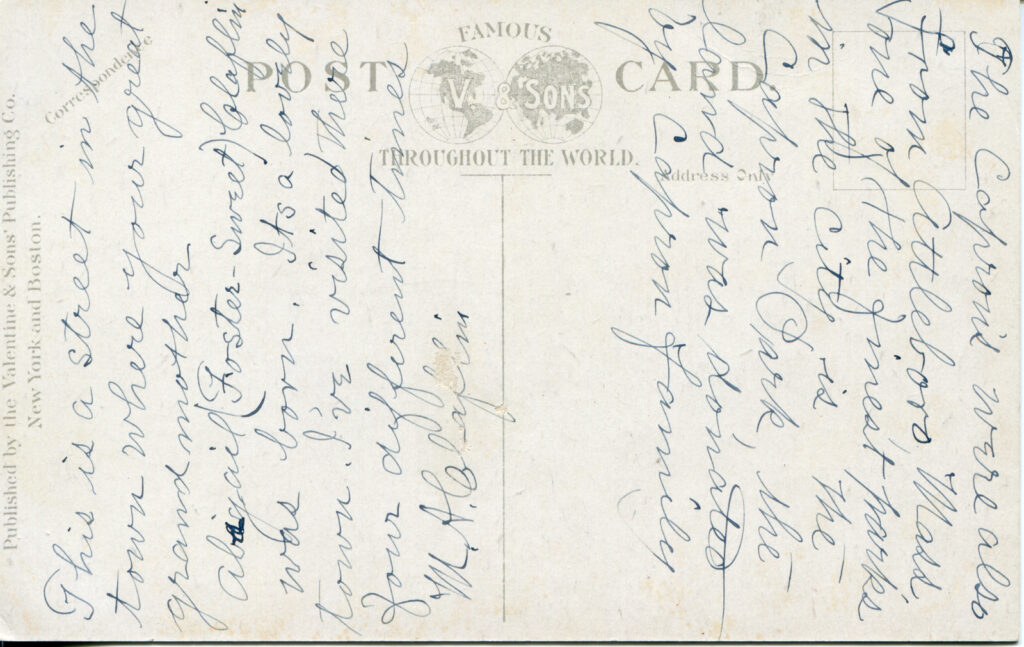 FAMOUS
POST CARD.
V. & SONS
THROUGHOUT THE WORLD.
Correspondence
Address Only
Published by the Valentine & Sons' Publishing Co.
New York and Boston.
This is a street in the
town where your great
grandmother
abigail (Foster-Sweet) Claflin
was born. Its a lovely
town. I've visited there
four different times
M. A. Claflin
The Capron's were also
From Attleboro, Mass
one of the finest parks
in the city is the
Capron Park the
land was donated
by Capron family